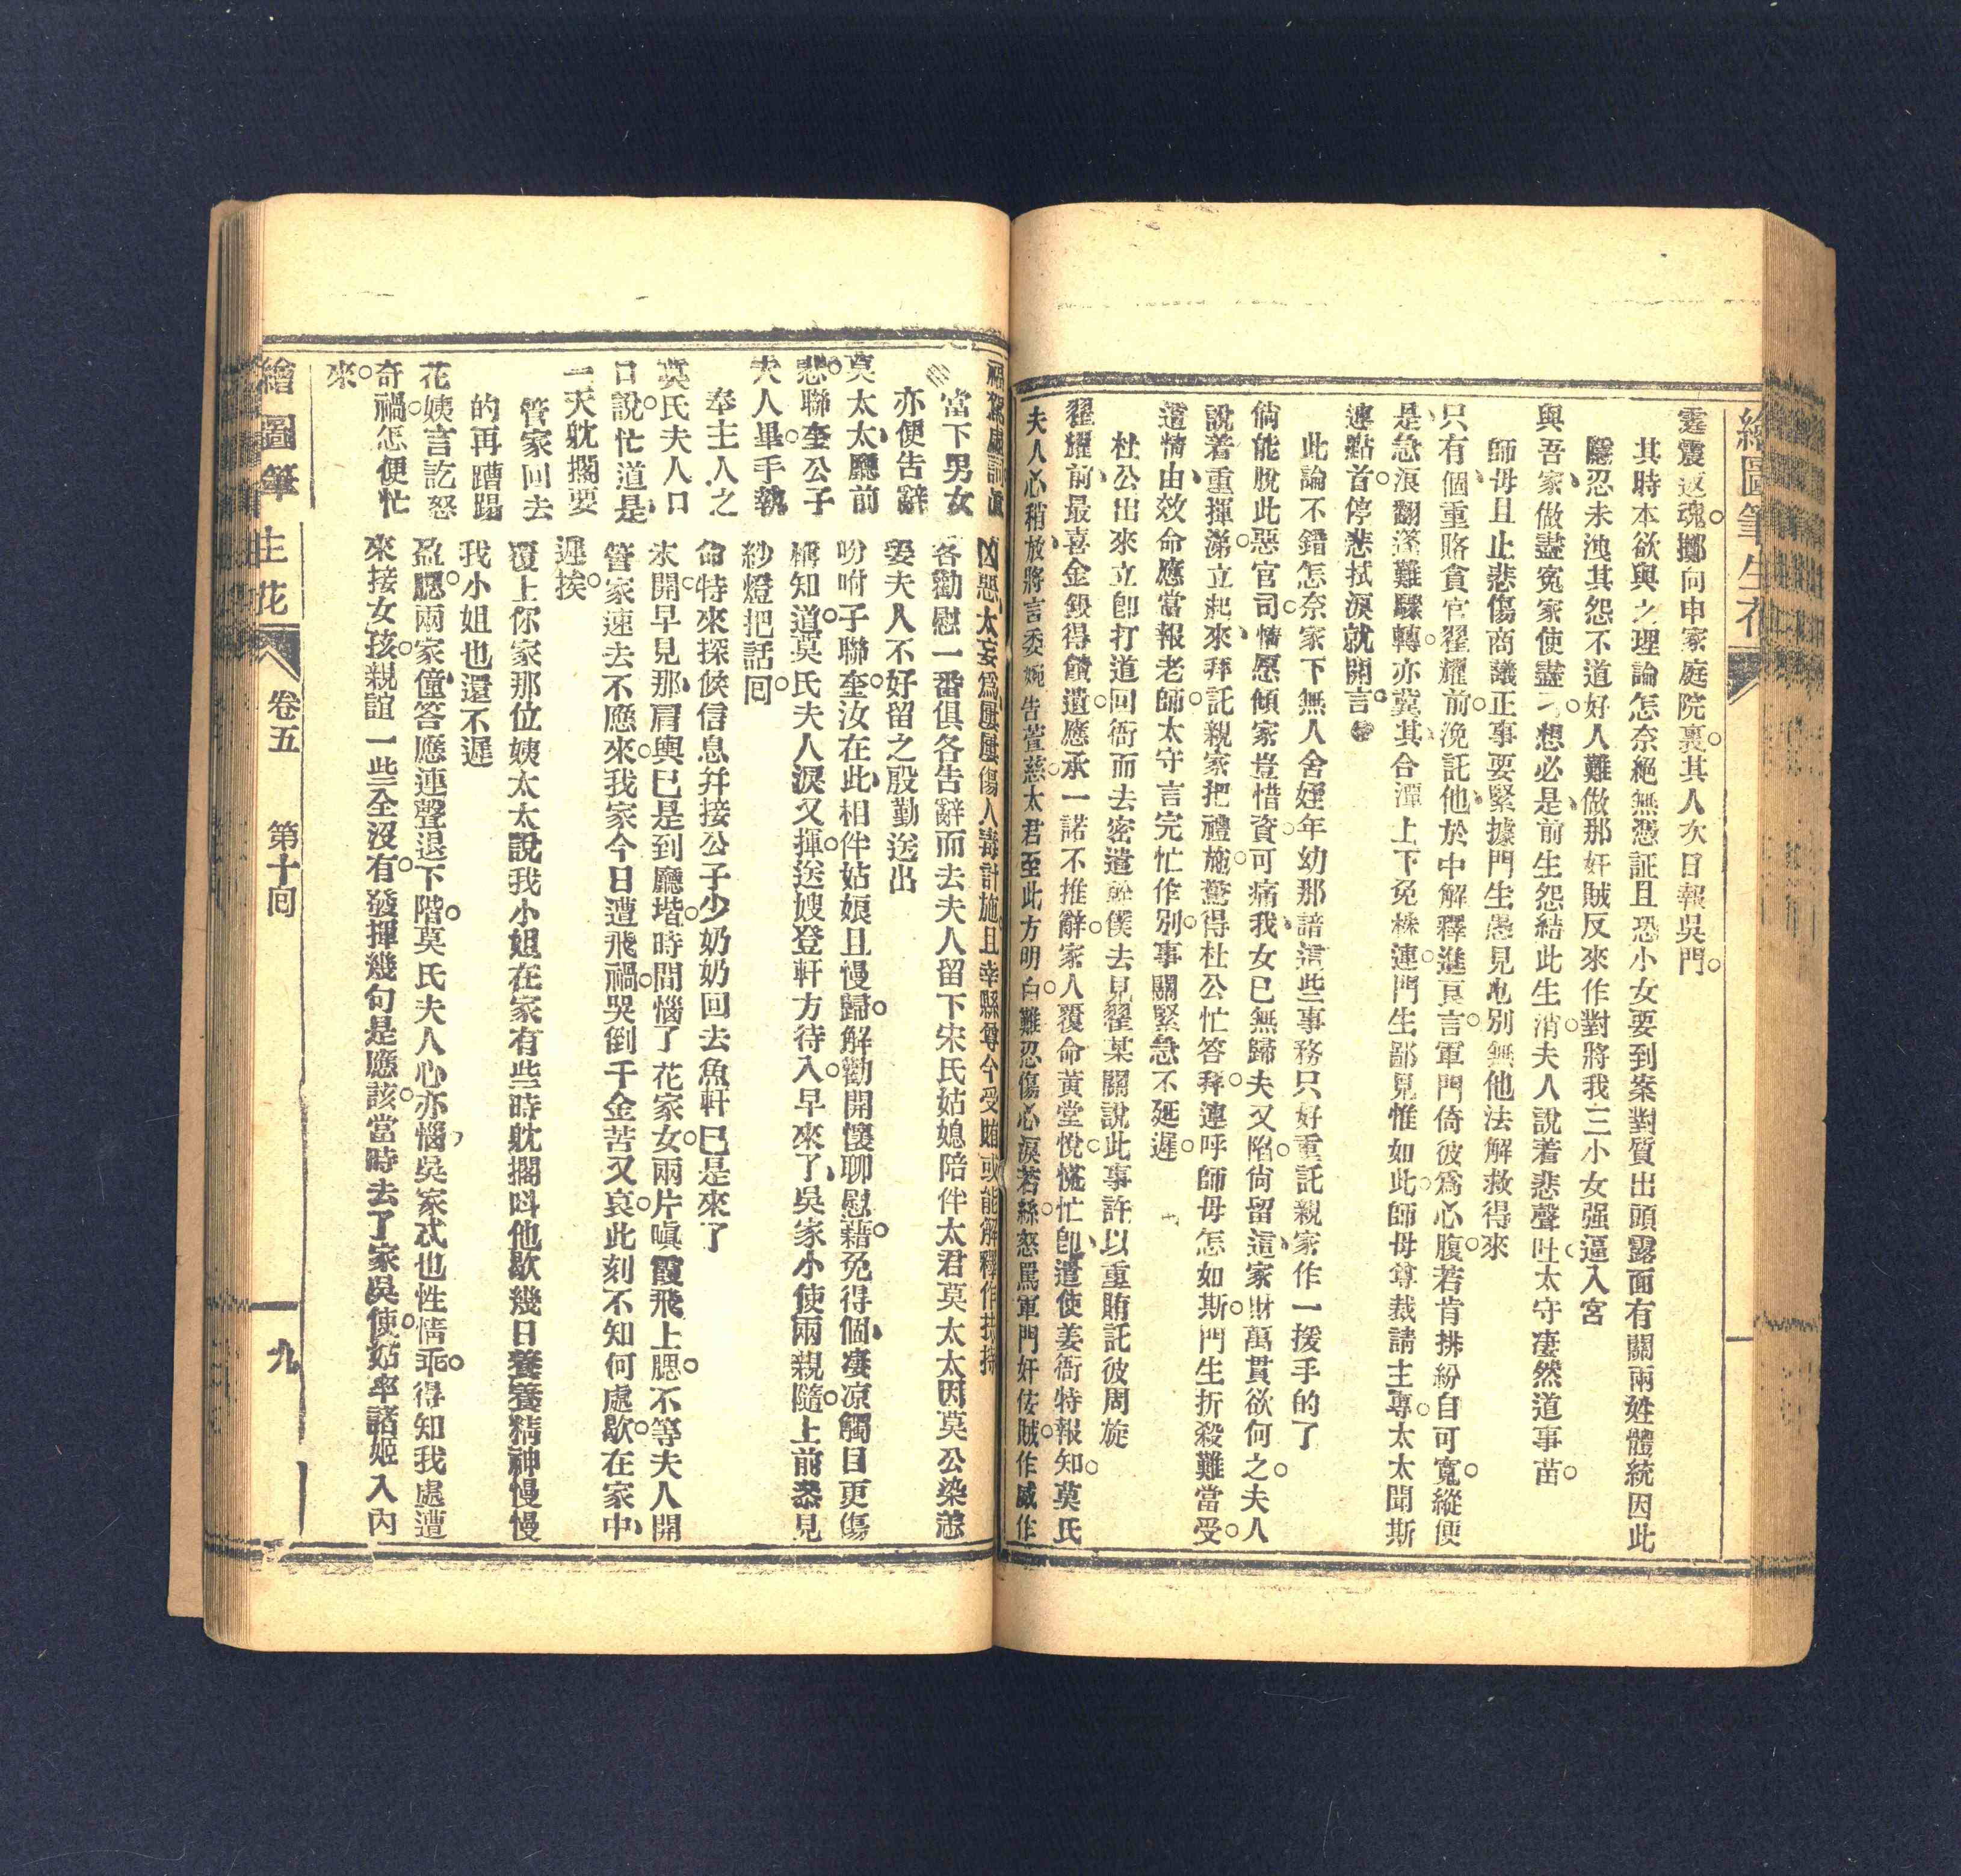 繪圖筆生花
霆震返魂。擲向申家庭院裏。其人次日報吳門。
其時本欲與之理論怎奈絕無憑証且恐小女要到案對質出頭露面有關兩姓體統因此
隱忍未洩其怨不道好人難做那奸賊反來作對將我三小女强逼入宮
與吾家、做盡寃家使盡刁。想必是、前生怨結此生消。夫人說着悲聲吐、太守凄然道事苗。
師母且止悲傷商議正事要緊據門生愚見也別無他法解救得來
只有個、重賂貪官翟耀前。浼託他、於中解釋進哀言。軍門倚彼爲心腹。若肯排紛自可寬。縱便
是、急淚翻蓬難驟轉。亦冀其、合潭上下免株連。門生鄙見惟如此。師母尊裁請主專。太太聞斯
連點首。停悲拭淚就開言。
此論不錯怎奈家下無人舍姪年幼那諳這些事務只好重託親家作一援手的了
倘能脫此惡官司。情愿傾家豈惜資。可痛我、女已無歸夫又陷。尙留這、家財萬貫欲何之。夫人
說着重揮涕。立起來、拜託親家把禮施。驚得杜公忙答拜。連呼師母怎如斯。門生折殺難當受。
遣情由、效命應當報老師。太守言完忙作別。事關緊急不延遲。
杜公出來立即打道回衙而去密遣幹僕去見翟某關說此事許以重賄託彼周旋
翟耀前、最喜金銀得饋遺。應承一諾不推辭。家人覆命黃堂悅。慌忙卽、遣使姜衙特報知。莫氏
夫人心稍放、將言委婉告萱慈。太君至此方明白。難忍傷心淚若絲。怒罵軍門奸佞賊。作威作
凶惡太妄爲。屢屢傷人毒計施。且幸縣尊今受賄或能解釋作扶持
當下男女各勸慰一番俱各告辭而去夫人留下宋氏姑媳陪伴太君莫太太因莫公染恙
亦便告辭姜夫人不好留之殷勤送出
莫太太、廳前吩咐子聯奎。汝在此、相伴姑娘且慢歸。解勸開懷聊慰藉。免得個、凄凉觸目更傷
悲。聯奎公子稱知道。莫氏夫人淚又揮。送嫂登軒方待入。早來了、吳家小使兩親隨。上前恭見
夫人畢。手執紗燈把話回。
奉主人之命特來探候信息幷接公子少奶奶回去魚軒已是來了
莫氏夫人口未開。早見那、肩輿已是到廳堦。時間惱了花家女。兩片嗔霞飛上腮。不等夫人開
口說。忙道是、管家速去不應來。我家今日遭飛禍。哭倒千金苦又哀。此刻不知何處歇。在家中、
一天躭擱要遲挨。
管家回去覆上你家那位姨太太說我小姐在家有些時躭擱呌他歇幾日養養精神慢慢
的再蹧蹋我小姐也還不遲
花姨言訖怒盈腮。兩家僮、答應連聲退下階。莫氏夫人心亦惱、吳家忒也性情乖。得知我處遭
奇禍。怎便忙來接女孩。親誼一些全沒有。發揮幾句是應該。當時去了家吳使。姑率諸姬入內
來。
繪圖筆生花
卷五　第十回
九